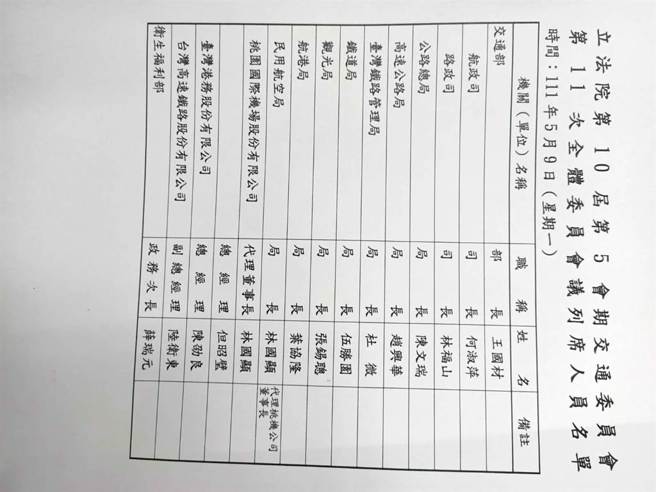 立法院第10屆第5會期交通委員會
第11次全體委員會議列席人員名單
時間：111年5月9日（星期一）
機關（單位）名稱 職稱 姓名 備註
交通部 部長 王國材
航政司 司長 何淑萍
路政司 司長 林福山
公路總局 局長 陳文瑞
高速公路局 局長 趙興華
臺灣鐵路管理局 局長 杜微
鐵道局 局長 伍勝園
觀光局 局長 張錫聰
航港局 局長 葉協隆
民用航空局 局長 林國顯 代理桃機公司董事長
桃園國際機場股份有限公司 代理董事長 林國顯
總經理 但昭璧
臺灣港務股份有限公司 總經理 陳劭良
台灣高速鐵路股份有限公司 副總經理 陸衛東
衛生福利部 政務次長 薛瑞元